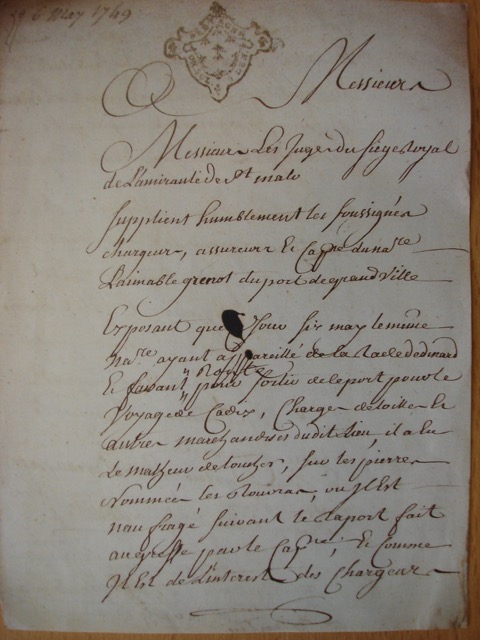 6 May 1749
Messieurs
Messieurs Les Juges du siege royal
de L'amirauté de St malo
Supplient humblement les soussignés
chargeurs, assureurs Et Capne du nare
L'aimable grenot du port de grandville
Exposant que Jour six may le même
nare ayant appareillé de la
Et faisant pour sortir de le port pour le
Voyage de Cadix, Chargé de toilles Et
autres marchandises dudit Lieu, il a Eu
Le malheur de toucher, sur les pierres
nommées les ou Il Est
naufragé suivant le raport fait
au greffe par le Capne, Et comme
Il Est de L'interest des Chargeurs